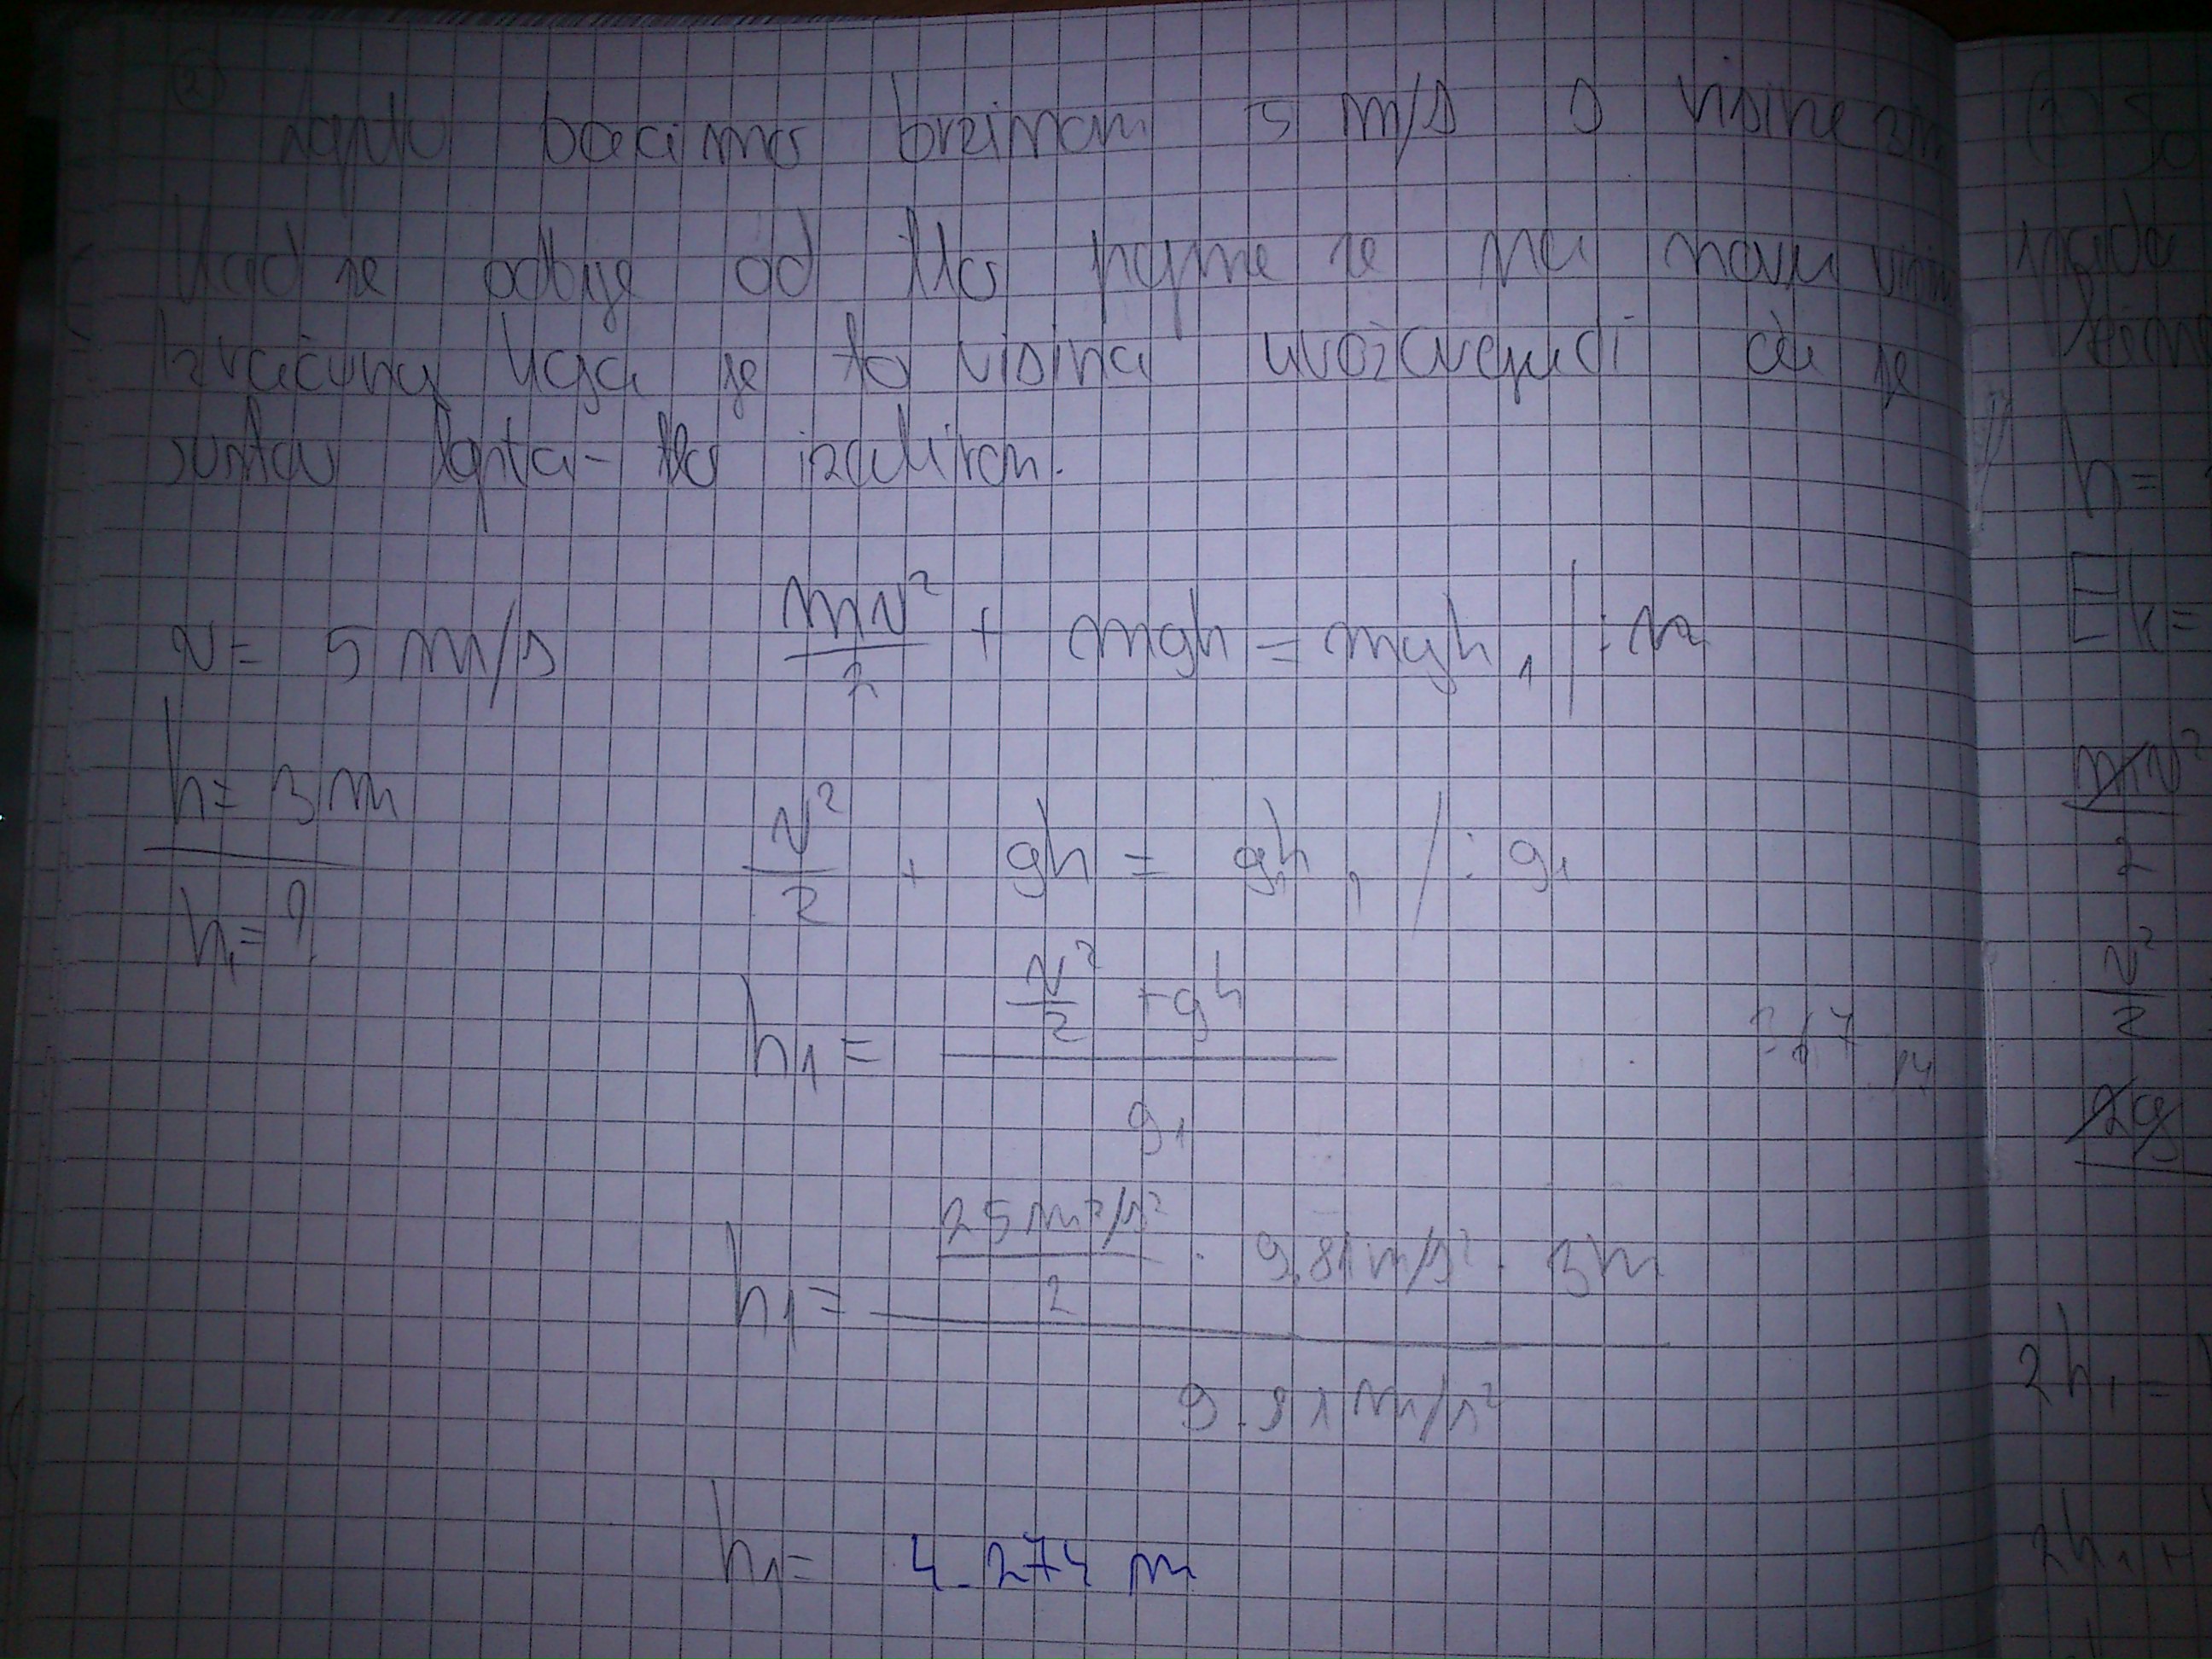 2
Loptu bacimo brzinom 5 m/s s visine 3m
Kad se odbije od tlo popne se na novu visinu
Izračunaj koja je to visina uvažavajući da je
sustav lopta - tlo izoliran.
v = 5 m/s
h = 3 m
h₁ = ?
mv²/2 + mgh = mgh₁ /: m
v²/2 + gh = gh₁ /: g₁
h₁ = (v²/2 + gh)/g₁
h₁ = (25 m²/s²/2 · 9.81 m/s² · 3m)/9.81 m/s²
h₁ = 4.274 m
h =
Ek =
mv²
2
v²
2
2g
2h₁ =
2h₁